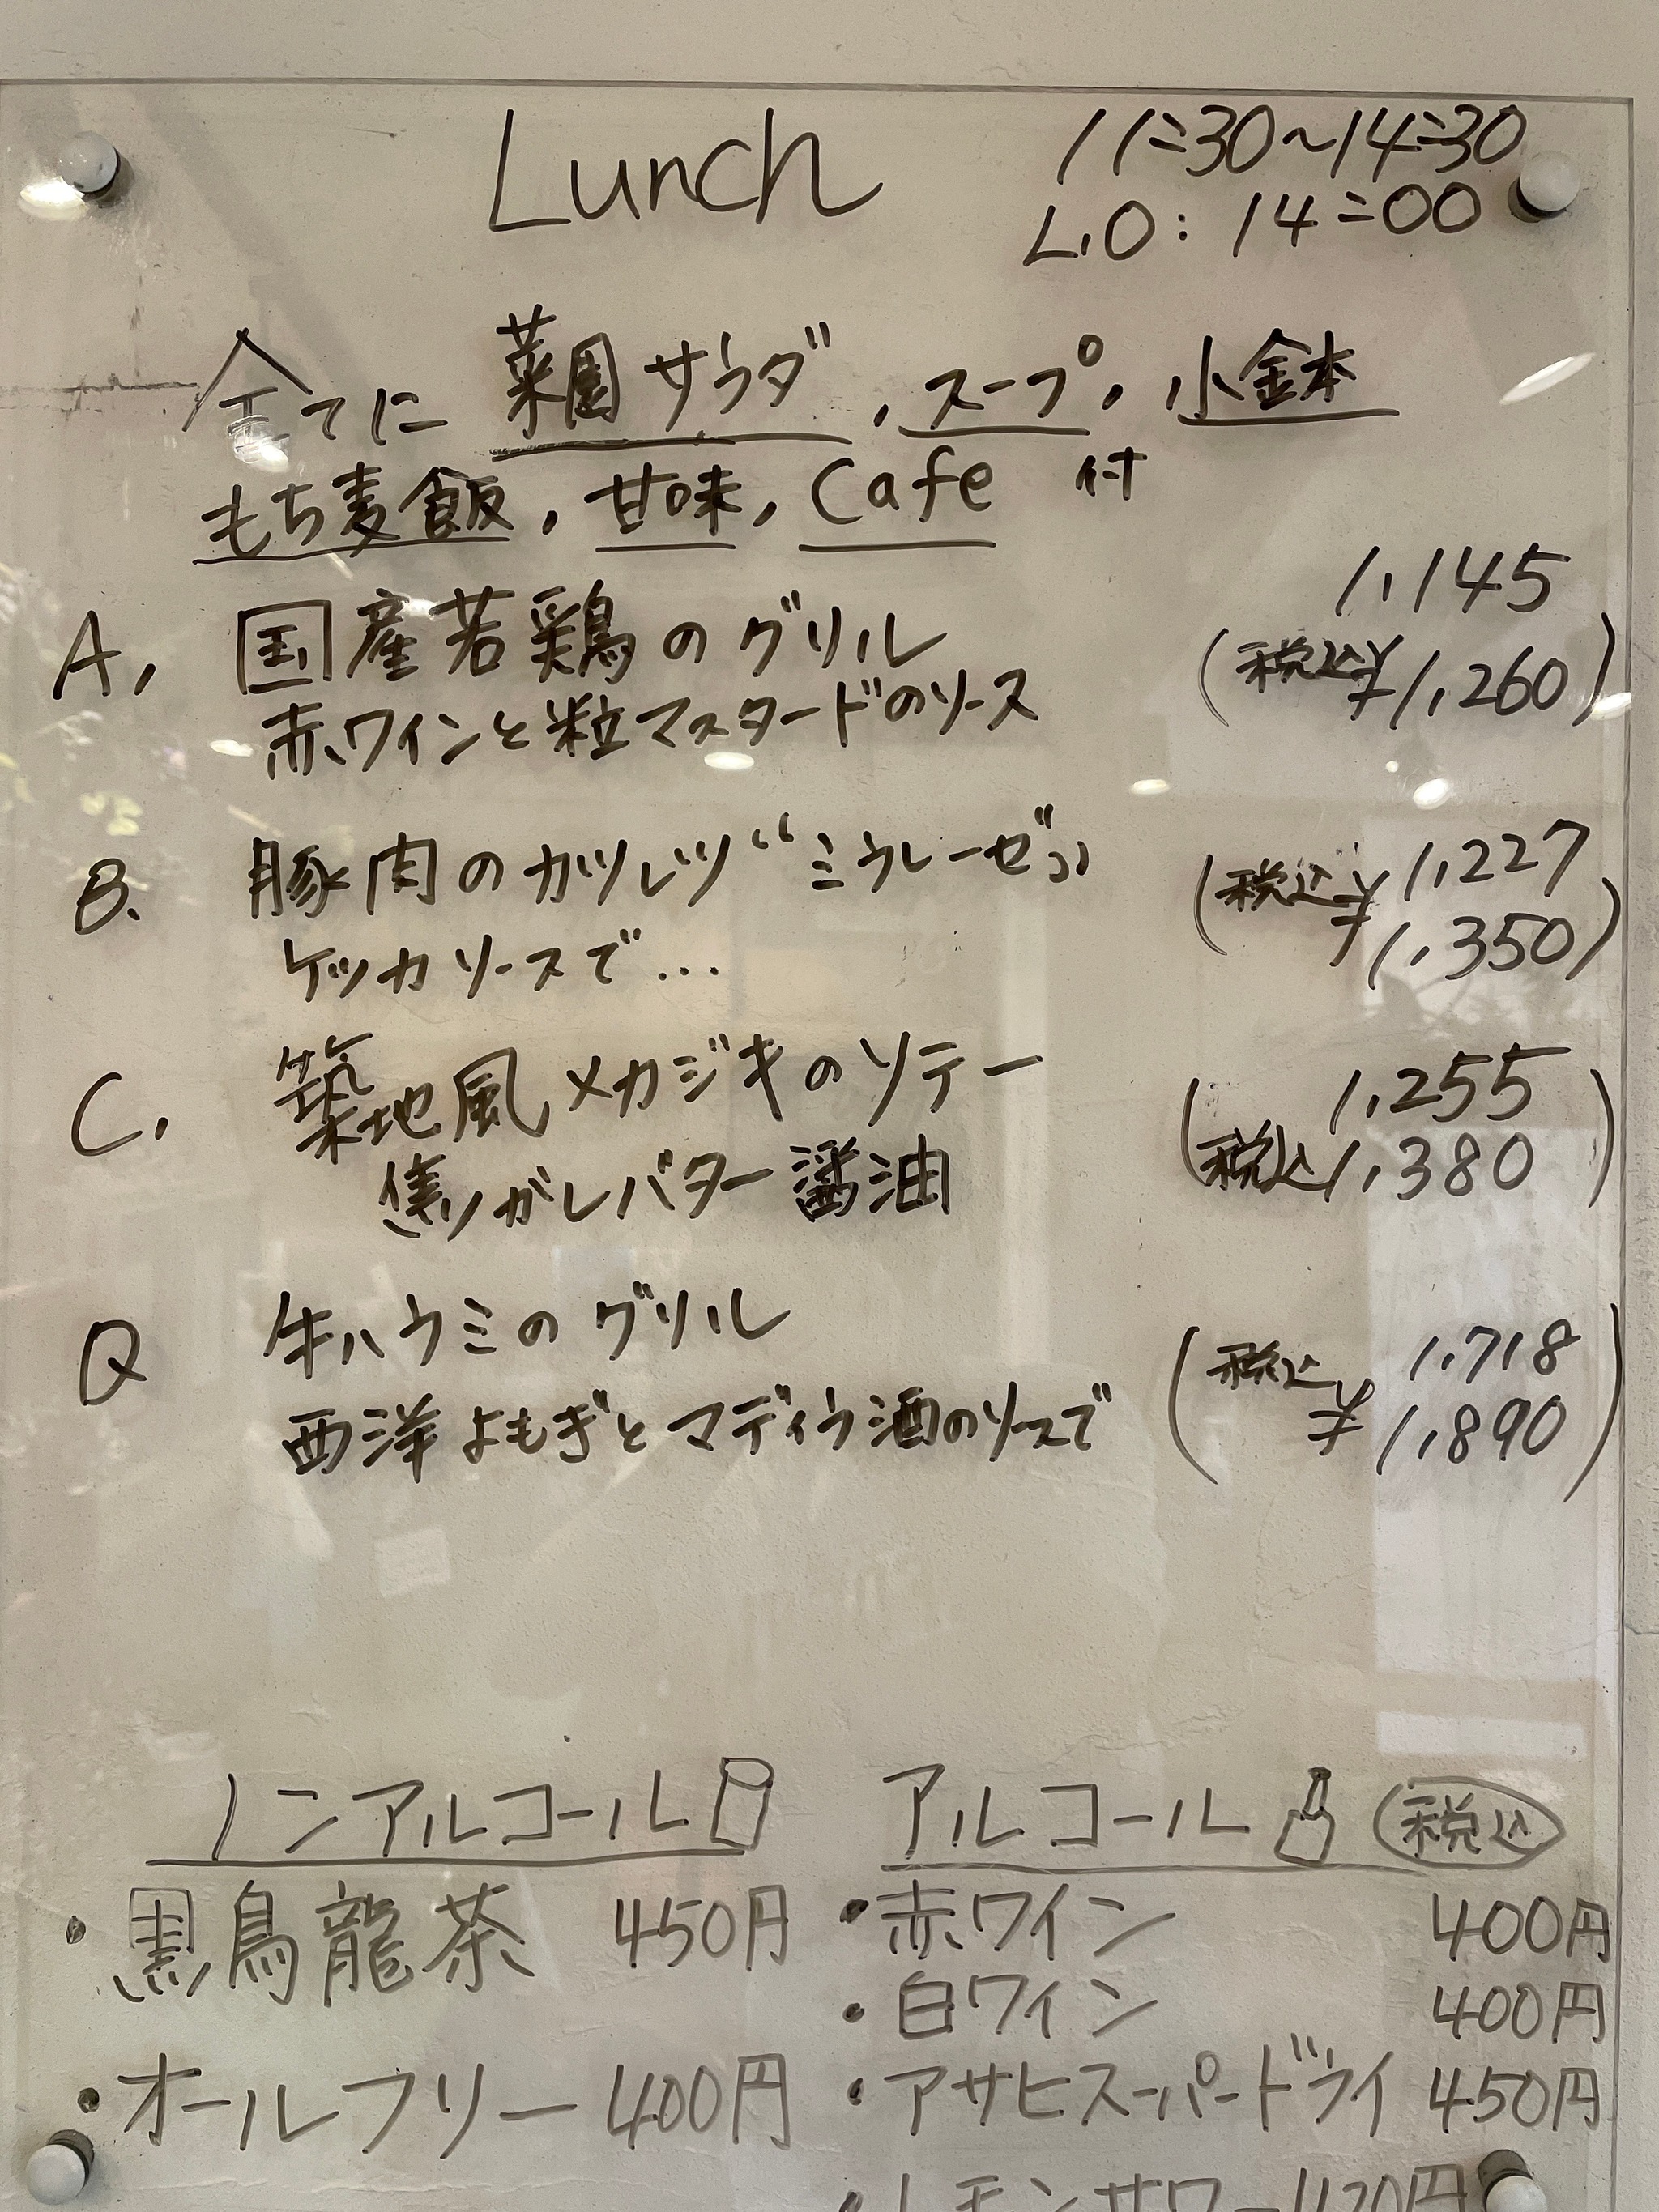 Lunch
11:30~14:30
L.O: 14:00
全てに 菜園サラダ, スープ, 小鉢
もち麦飯, 甘味, Cafe 付
A, 国産若鶏のグリル 1,145
赤ワインと粒マスタードのソース (税込¥1,260)
B. 豚肉のカツレツ“ミラレーゼ” 1,227
ケッカソースで… (税込¥1,350)
C. 築地風メカジキのソテー 1,255
焦がしバター醤油 (税込1,380)
Q 牛ハラミのグリル 1,718
西洋よもぎとマディラ酒のソースで (税込¥1,890)
ノンアルコール
・黒烏龍茶 450円
・オールフリー 400円
アルコール 税込
・赤ワイン 400円
・白ワイン 400円
・アサヒスーパードライ 450円
・レモンサワー